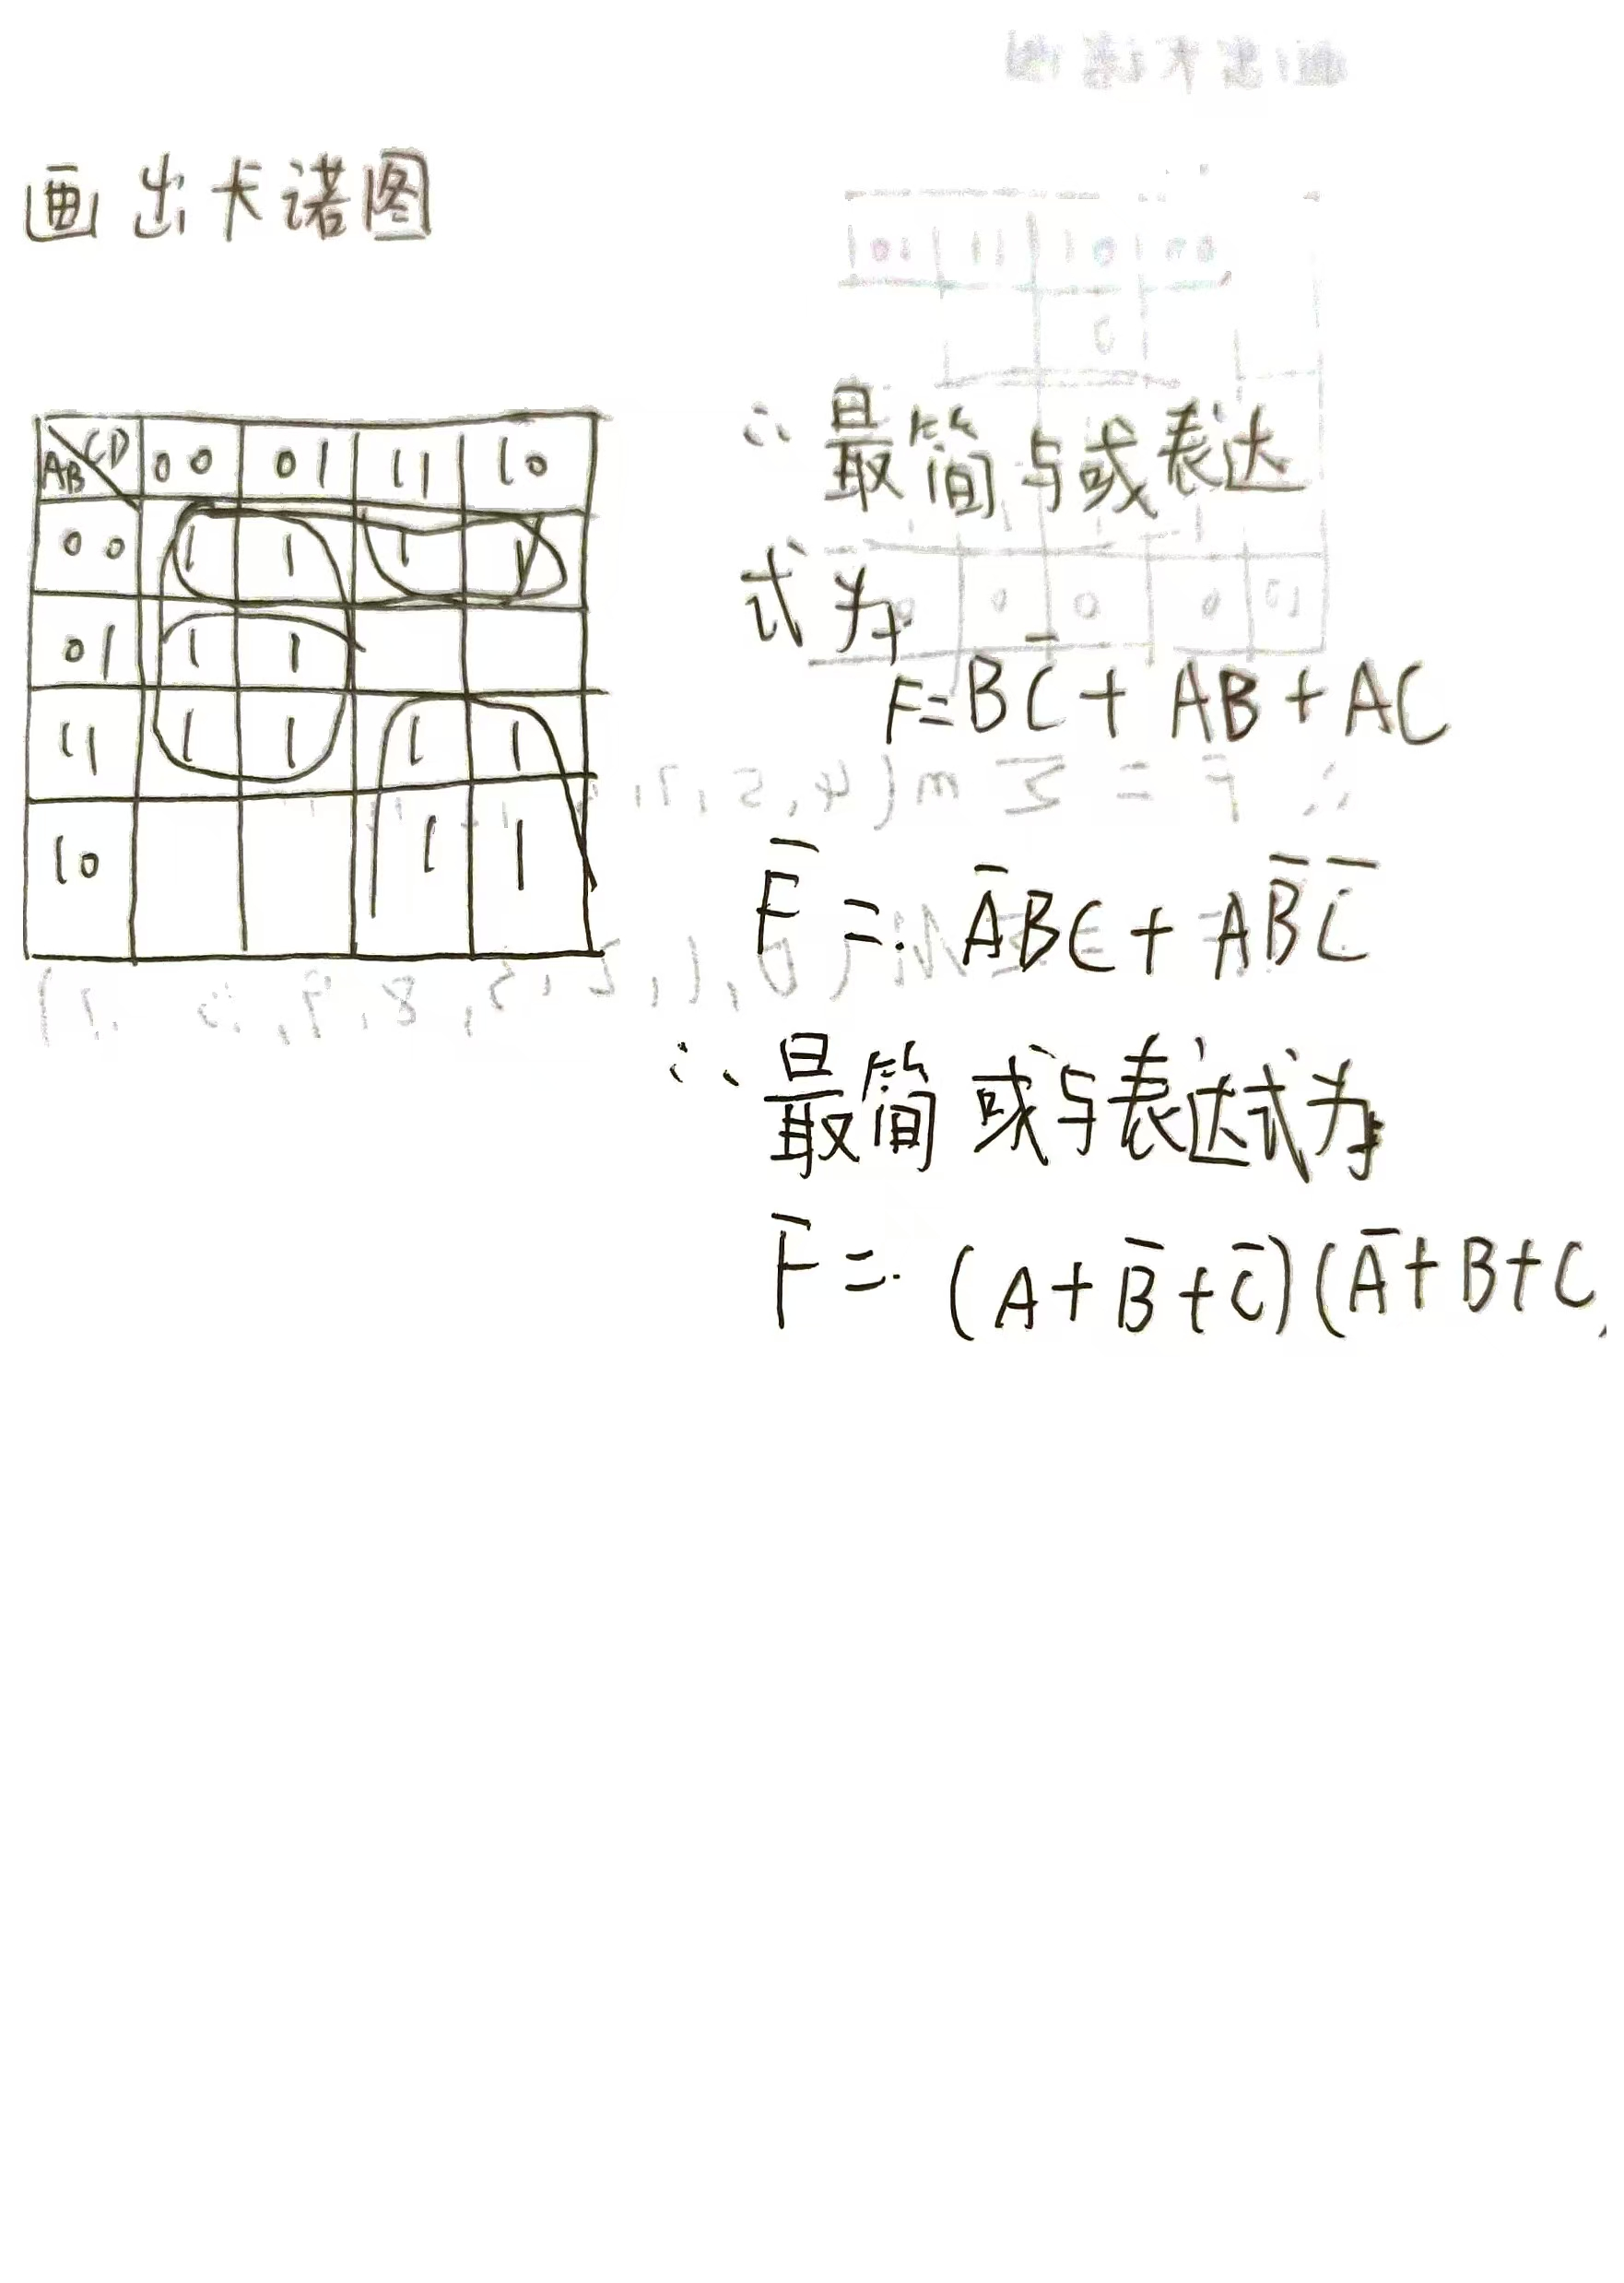 画出卡诺图
AB CD 00 01 11 10
00 1 1 1 1
01 1 1
11 1 1 1 1
10 1 1
∴ 最简与或表达
式为
F=BC̅+AB+AC
F̅=A̅BC+AB̅C̅
∴ 最简或与表达式为
F̅=(A+B̅+C̅)(A̅+B+C